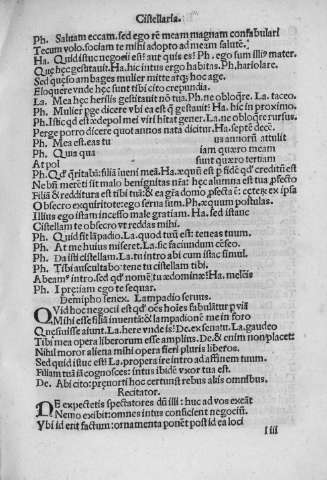 Cistellaria.
Ph. Saluam eccam. sed ego rẽ meam magnam confabulari
Tecum volo. sociam te mihi adopto ad meam salutẽ.
Ha. Quid istuc negocii est? aut quis es? Ph. ego sum illiꝰ mater.
Ha. hic intus ergo habitas. Ph. hariolare.
Sed quęso ambages mulier mitte atqꝫ hoc age.
Eloquere vnde hęc sunt tibi cito crepundia.
La. Mea hęc herilis gestitauit nõ tua. Ph. ne obloqře. La. taceo.
Ph. Mulier pge dicere vbi ea est q̃ gestauit: Ha. hic in proximo.
Ph. Istic qđ est ędepol mei viri hitat gener. La. ne obloqře rursus.
Perge porro dicere quot annos nata dicitur. Ha. septẽ decẽ.
Ph. Mea est. eas tu us annorũ attulit
Ph. Qua qua iam quæro meam
At pol sunt quæro tertiam
Nebũ merẽti sit malo benignitas nřa: hęc alumna est tua, pfecto
Obsecro exquiritote: ego serua sum. Ph. æquum postulas.
Illius ego istam incesso male gratiam. Ha. sed istanc
Cistellam te obsecro vt reddas mihi.
Ph. Quid sit lãpadio. La. quod tuũ est: teneas tuum.
Ph. At me huius miseret. La. sic faciundum cẽseo.
Ph. Da isti cistellam. La. tu intro abi cum istac simul.
Ph. Tibi ausculta bo: tene tu cistellam tibi.
Abeamꝰ intro. sed qđ nomẽ: tuæ dominæ: Ha. melẽis
Ph. I præ: iam ego te sequar.
Demipho senex. Lampadio seruus.
QVid hoc negocii est qđ oẽs hoĩes fabulãtur p viã
Mihi esse filiã inuentã: & lampadionẽ me in foro
Quęsiuisse aiunt. La. here vnde is? De. ex senatu. La. gaudeo
Tibi mea opera liberorum esse amplius. De. & enim non placet:
Nihil moror aliena mihi opera fieri pluris liberos.
Sed quid istuc est? La. propera ire intro ad affinem tuum.
Filiam tuã iã cognosces: intus ibidẽ vxor tua est.
De. Abi cito: preuorti hoc certumst rebus aliis omnibus.
Recitator.
NE expectetis spectatores dũ illi: huc ad vos exeãt
Nemo exibit: omnes intus conficient negociũ.
Vbi id erit factum: ornamenta ponẽt postid ea loci
I iii